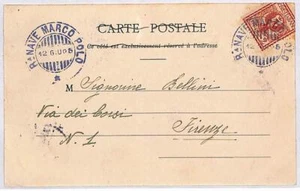 CARTE POSTALE
Ce côté est exclusivement réservé à l'adresse
R. NAVE MARCO POLO
R. NAVE MARCO POLO
M Signorine Bellini
Via dei
N. 1
Firenze